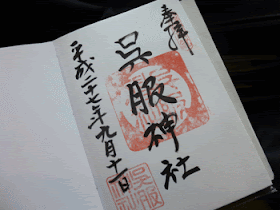 奉拝
呉服神社
平成二十七年九月十一日